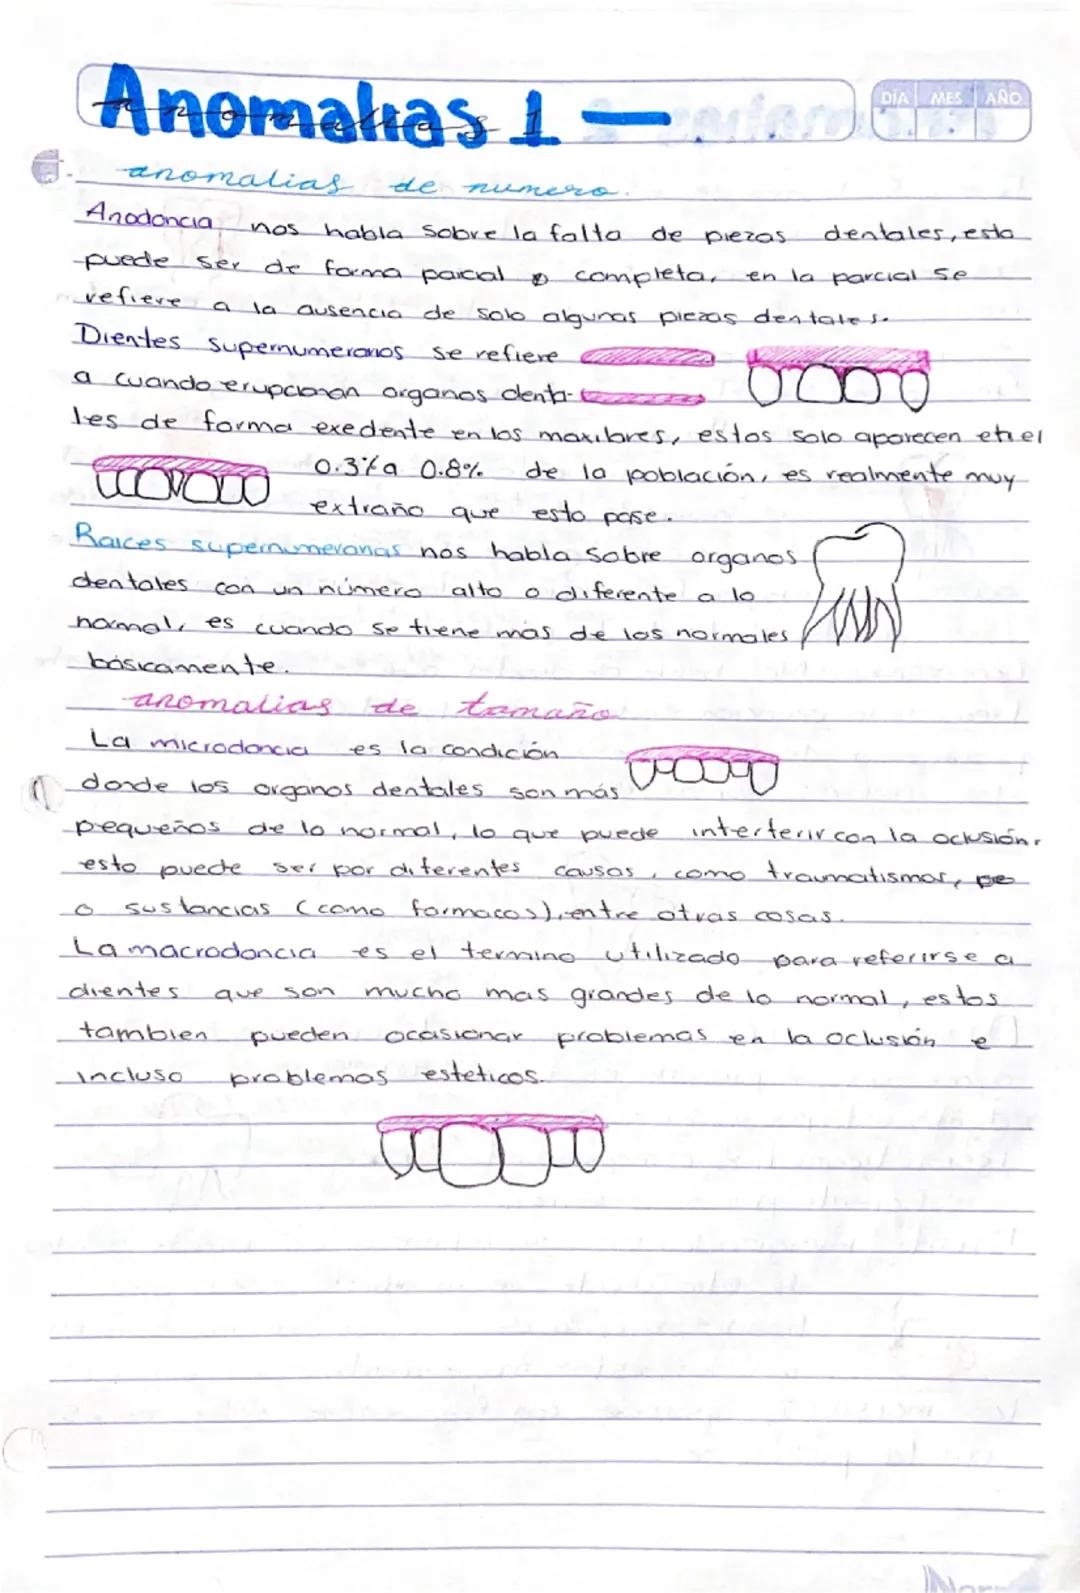 Anomalias 1 —
anomalias
DÍA MES AÑO
anomalias de numero.
Anodoncia nos habla sobre la falta de piezas dentales, esta
puede ser de forma parcial o completa, en la parcial se
refiere a la ausencia de solo algunas piezas dentales.
Dientes supernumerarios se refiere
a cuando erupcionan organos denta-
les de forma exedente en los maxilares, estos solo aparecen en el
0.3% a 0.8% de la población, es realmente muy
extraño que esto pase.
Raices supernumerarias nos habla sobre organos
dentales con un número alto o diferente a lo
normal, es cuando se tiene más de los normales
básicamente.
anomalias de tamaño
La microdoncia es la condición
donde los organos dentales son más
pequeños de lo normal, lo que puede interferir con la oclusión,
esto puede ser por diferentes causas, como traumatismos,
o sustancias (como farmacos), entre otras cosas.
La macrodoncia es el termino utilizado para referirse a
dientes que son mucho mas grandes de lo normal, estos
tambien pueden ocasionar problemas en la oclusión e
incluso problemas esteticos.